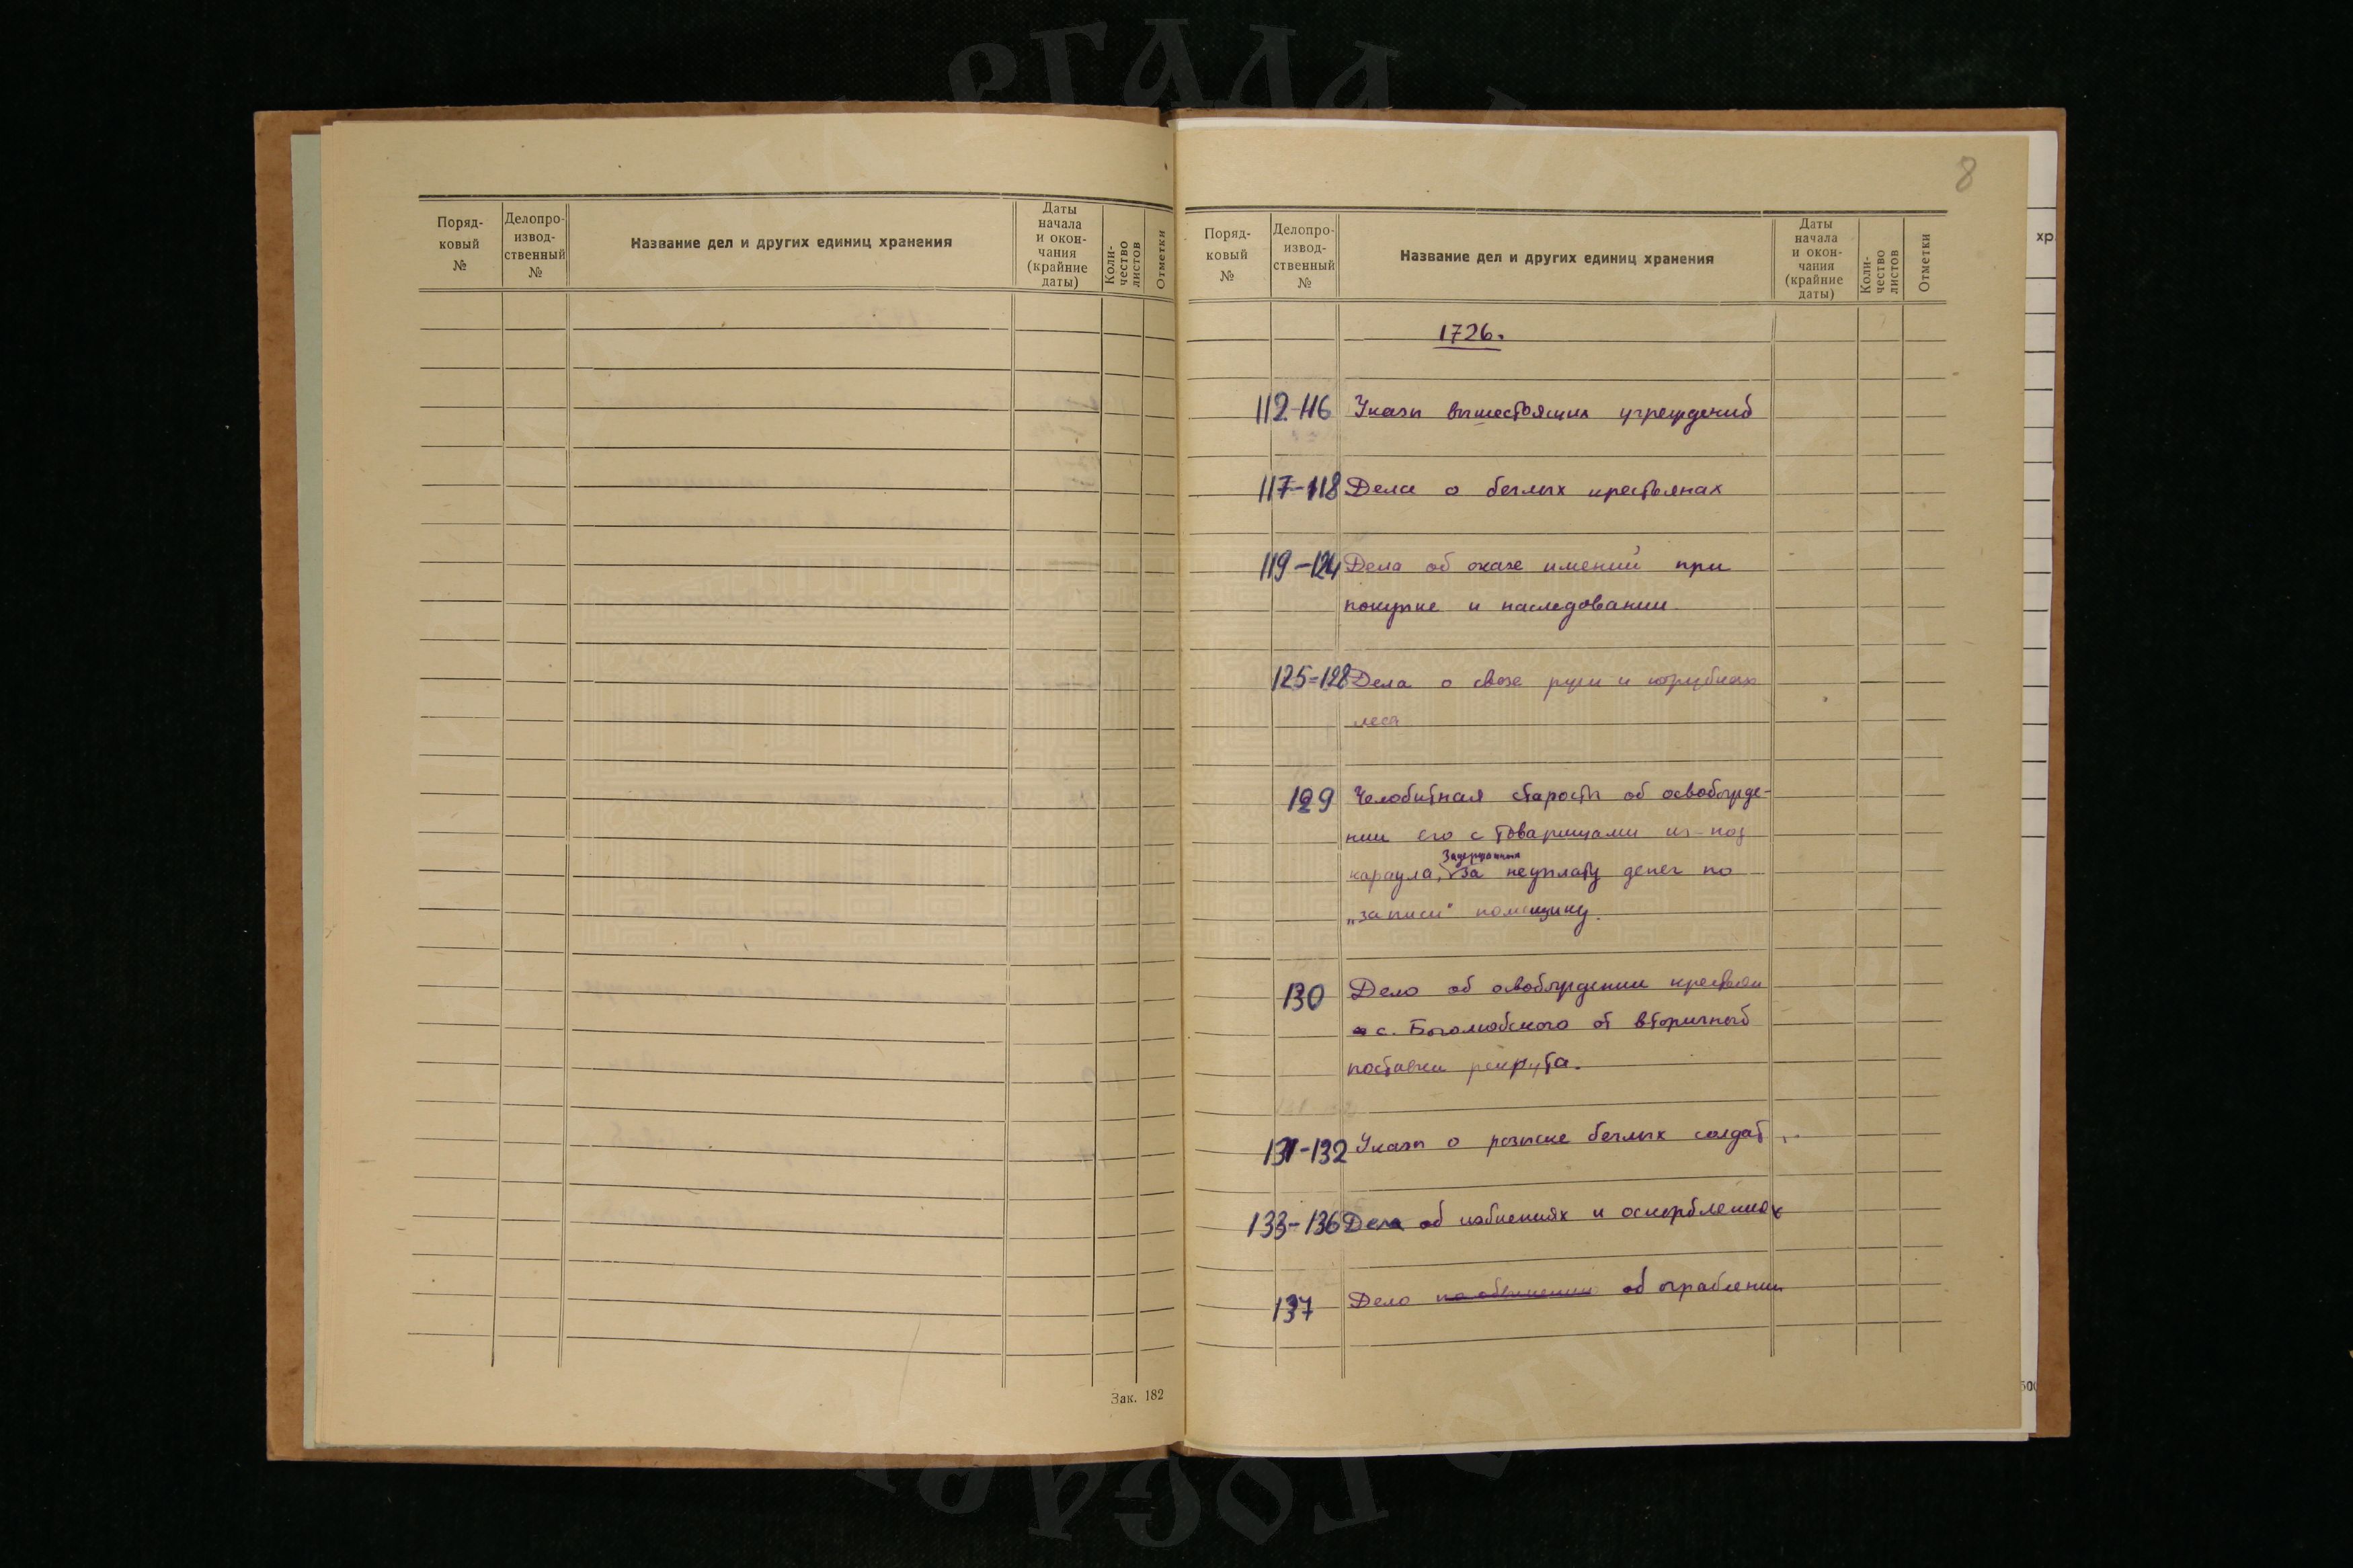 Поряд-
ковый
№
Делопро-
извод-
ственный
№
Название дел и других единиц хранения
Даты
начала
и окон-
чания
(крайние
даты)
Коли-
чество
листов
Отметки
Зак. 182
8
Поряд-
ковый
№
Делопро-
извод-
ственный
№
Название дел и других единиц хранения
Даты
начала
и окон-
чания
(крайние
даты)
Коли-
чество
листов
Отметки
1726.
112-116 Указы вышестоящих учреждений
117-118 Дела о беглых крестьянах
119-124 Дела об оказе имений при
покупке и наследовании
125-128 Дела о свозе ржи и порубках
леса
129 Челобитная старосты об освобожде-
нии его с товарищами из-под
Задержанных
караула, за неуплату денег по
„записи" помещику.
130 Дело об освобождении крестьян
с. Боголюбского от вторичной
поставки рекрута.
131-132 Указы о розыске беглых солдат
133-136 Дела об избиениях и оскорблениях
137 Дело об ограблении
хр.